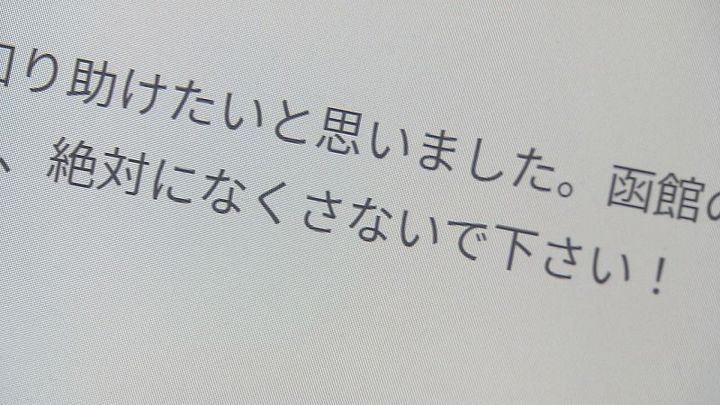 り助けたいと思いました。函館の
、絶対になくさないで下さい！